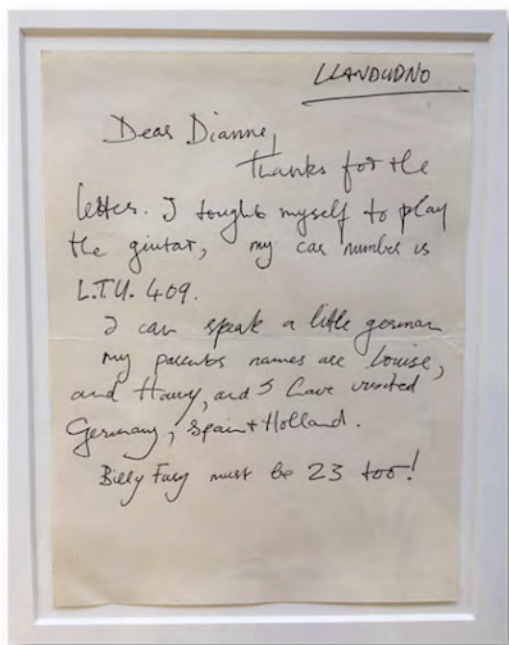 LLANDUDNO
Dear Dianne,
Thanks for the
letter. I taught myself to play
the giutar, my car number is
L.T.U. 409.
I can speak a little german
my parents names are Louise,
and Harry, and I have visited
Germany, Spain + Holland.
Billy Fury must be 23 too!